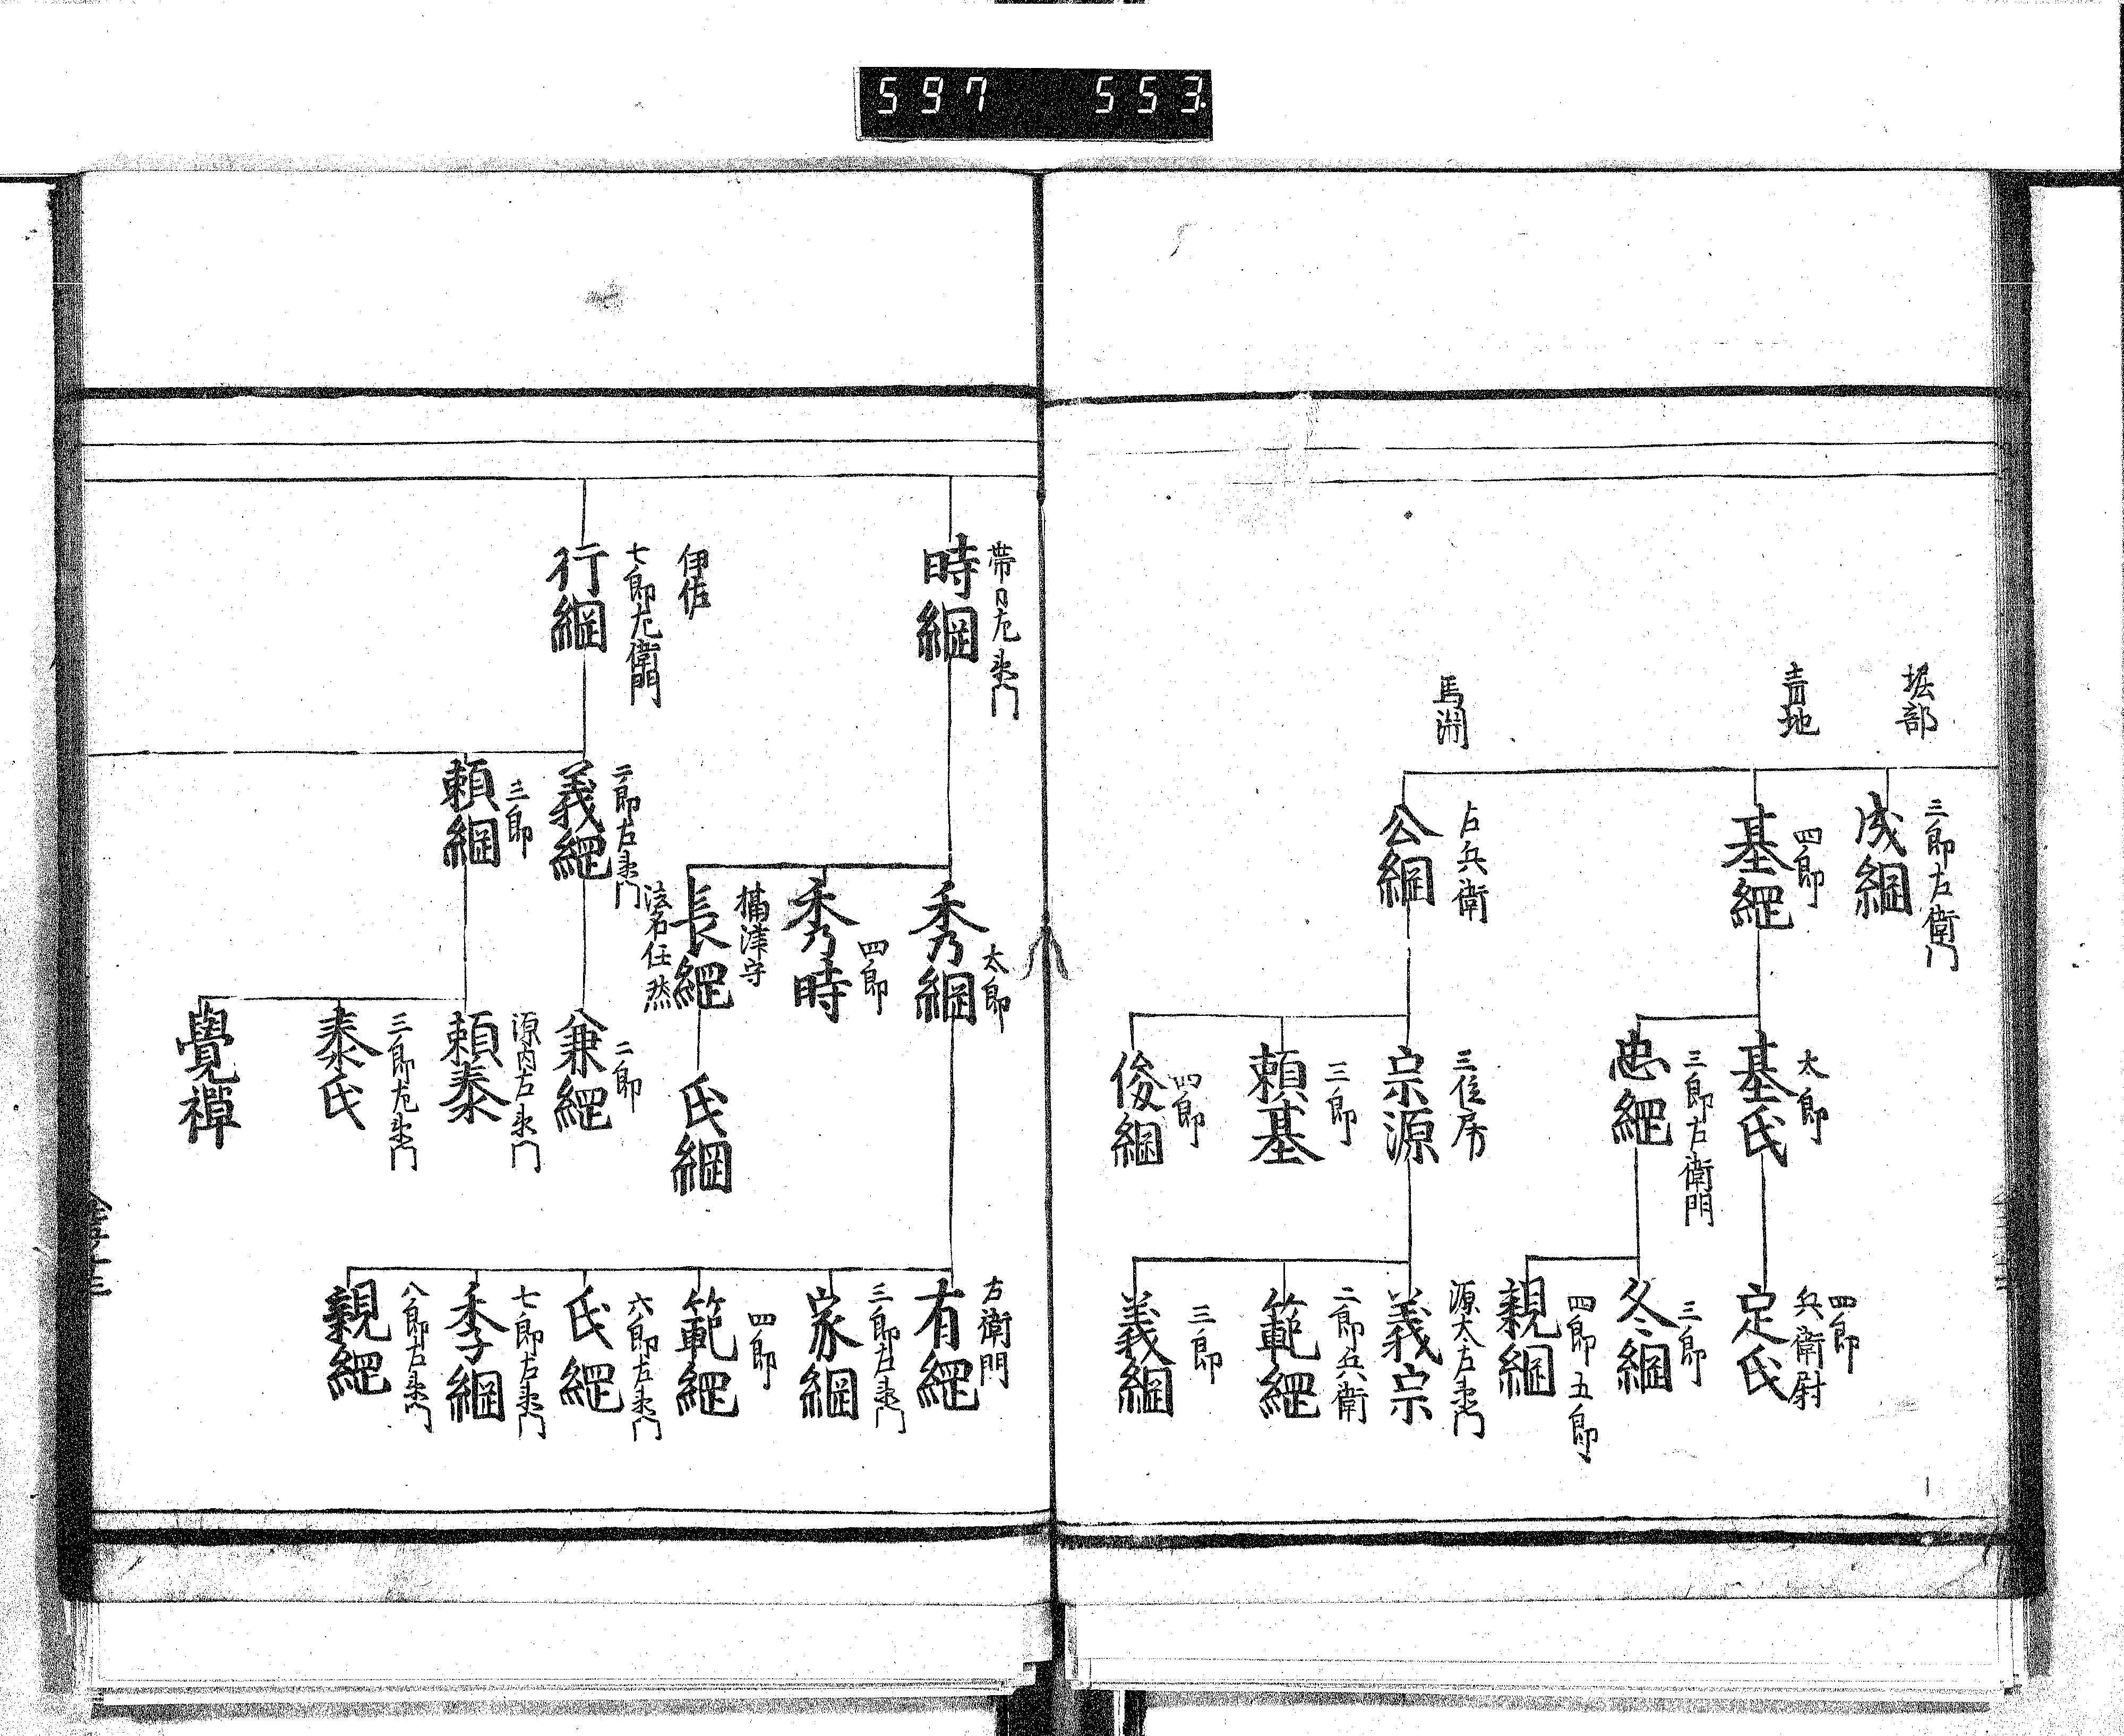 597 553.
堀部
三郎左衛門
成綱
青地
四郎
基綱
太郎
基氏
四郎
兵衛尉
定氏
三郎右衛門
忠綱
三郎
冬綱
四郎五郎
親綱
馬渕
右兵衛
公綱
三位房
宗源
源太左衛門
義宗
二郎兵衛
範綱
三郎
義綱
三郎
頼基
四郎
俊綱
帯刀左衛門
時綱
太郎
秀綱
左衛門
有綱
三郎左衛門
家綱
四郎
範綱
六郎左衛門
氏綱
七郎左衛門
季綱
八郎右衛門
親綱
四郎
秀時
摂津守
長綱
法名任然
氏綱
伊佐
七郎左衛門
行綱
二郎左衛門
義綱
二郎
兼綱
三郎
頼綱
源内左衛門
頼泰
三郎左衛門
泰氏
覺禅